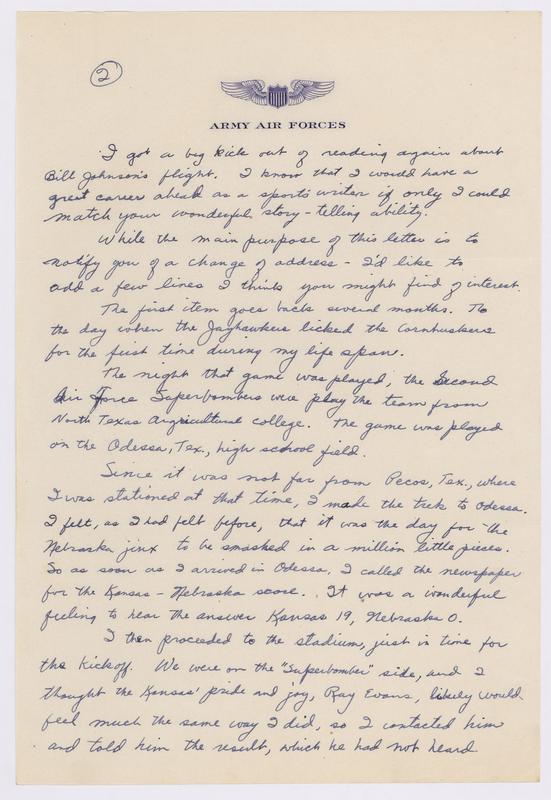 2
ARMY AIR FORCES
I got a big kick out of reading again about
Bill Johnson's flight. I know that I would have a
great career ahead as a sports writer if only I could
match your wonderful story-telling ability.
While the main purpose of this letter is to
notify you of a change of address - I'd like to
add a few lines I thinks you might find of interest.
The first item goes back several months. To
the day when the Jayhawkers licked the Cornhuskers
for the first time during my life span.
The night that game was played, the Second
Air Force Superbombers were play the team from
North Texas Agricultural college. The game was played
on the Odessa, Tex., high school field.
Since it was not far from Pecos, Tex., where
I was stationed at that time, I made the trek to Odessa.
I felt, as I had felt before, that it was the day for the
Nebraska jinx to be smashed in a million little pieces.
So as soon as I arrived in Odessa, I called the newspaper
for the Kansas - Nebraska score. It was a wonderful
feeling to hear the answer Kansas 19, Nebraska 0.
I then proceeded to the stadium, just in time for
the kickoff. We were on the "Superbomber" side, and I
thought the Kansas' pride and joy, Ray Evans, likely would
feel much the same way I did, so I contacted him
and told him the result, which he had not heard